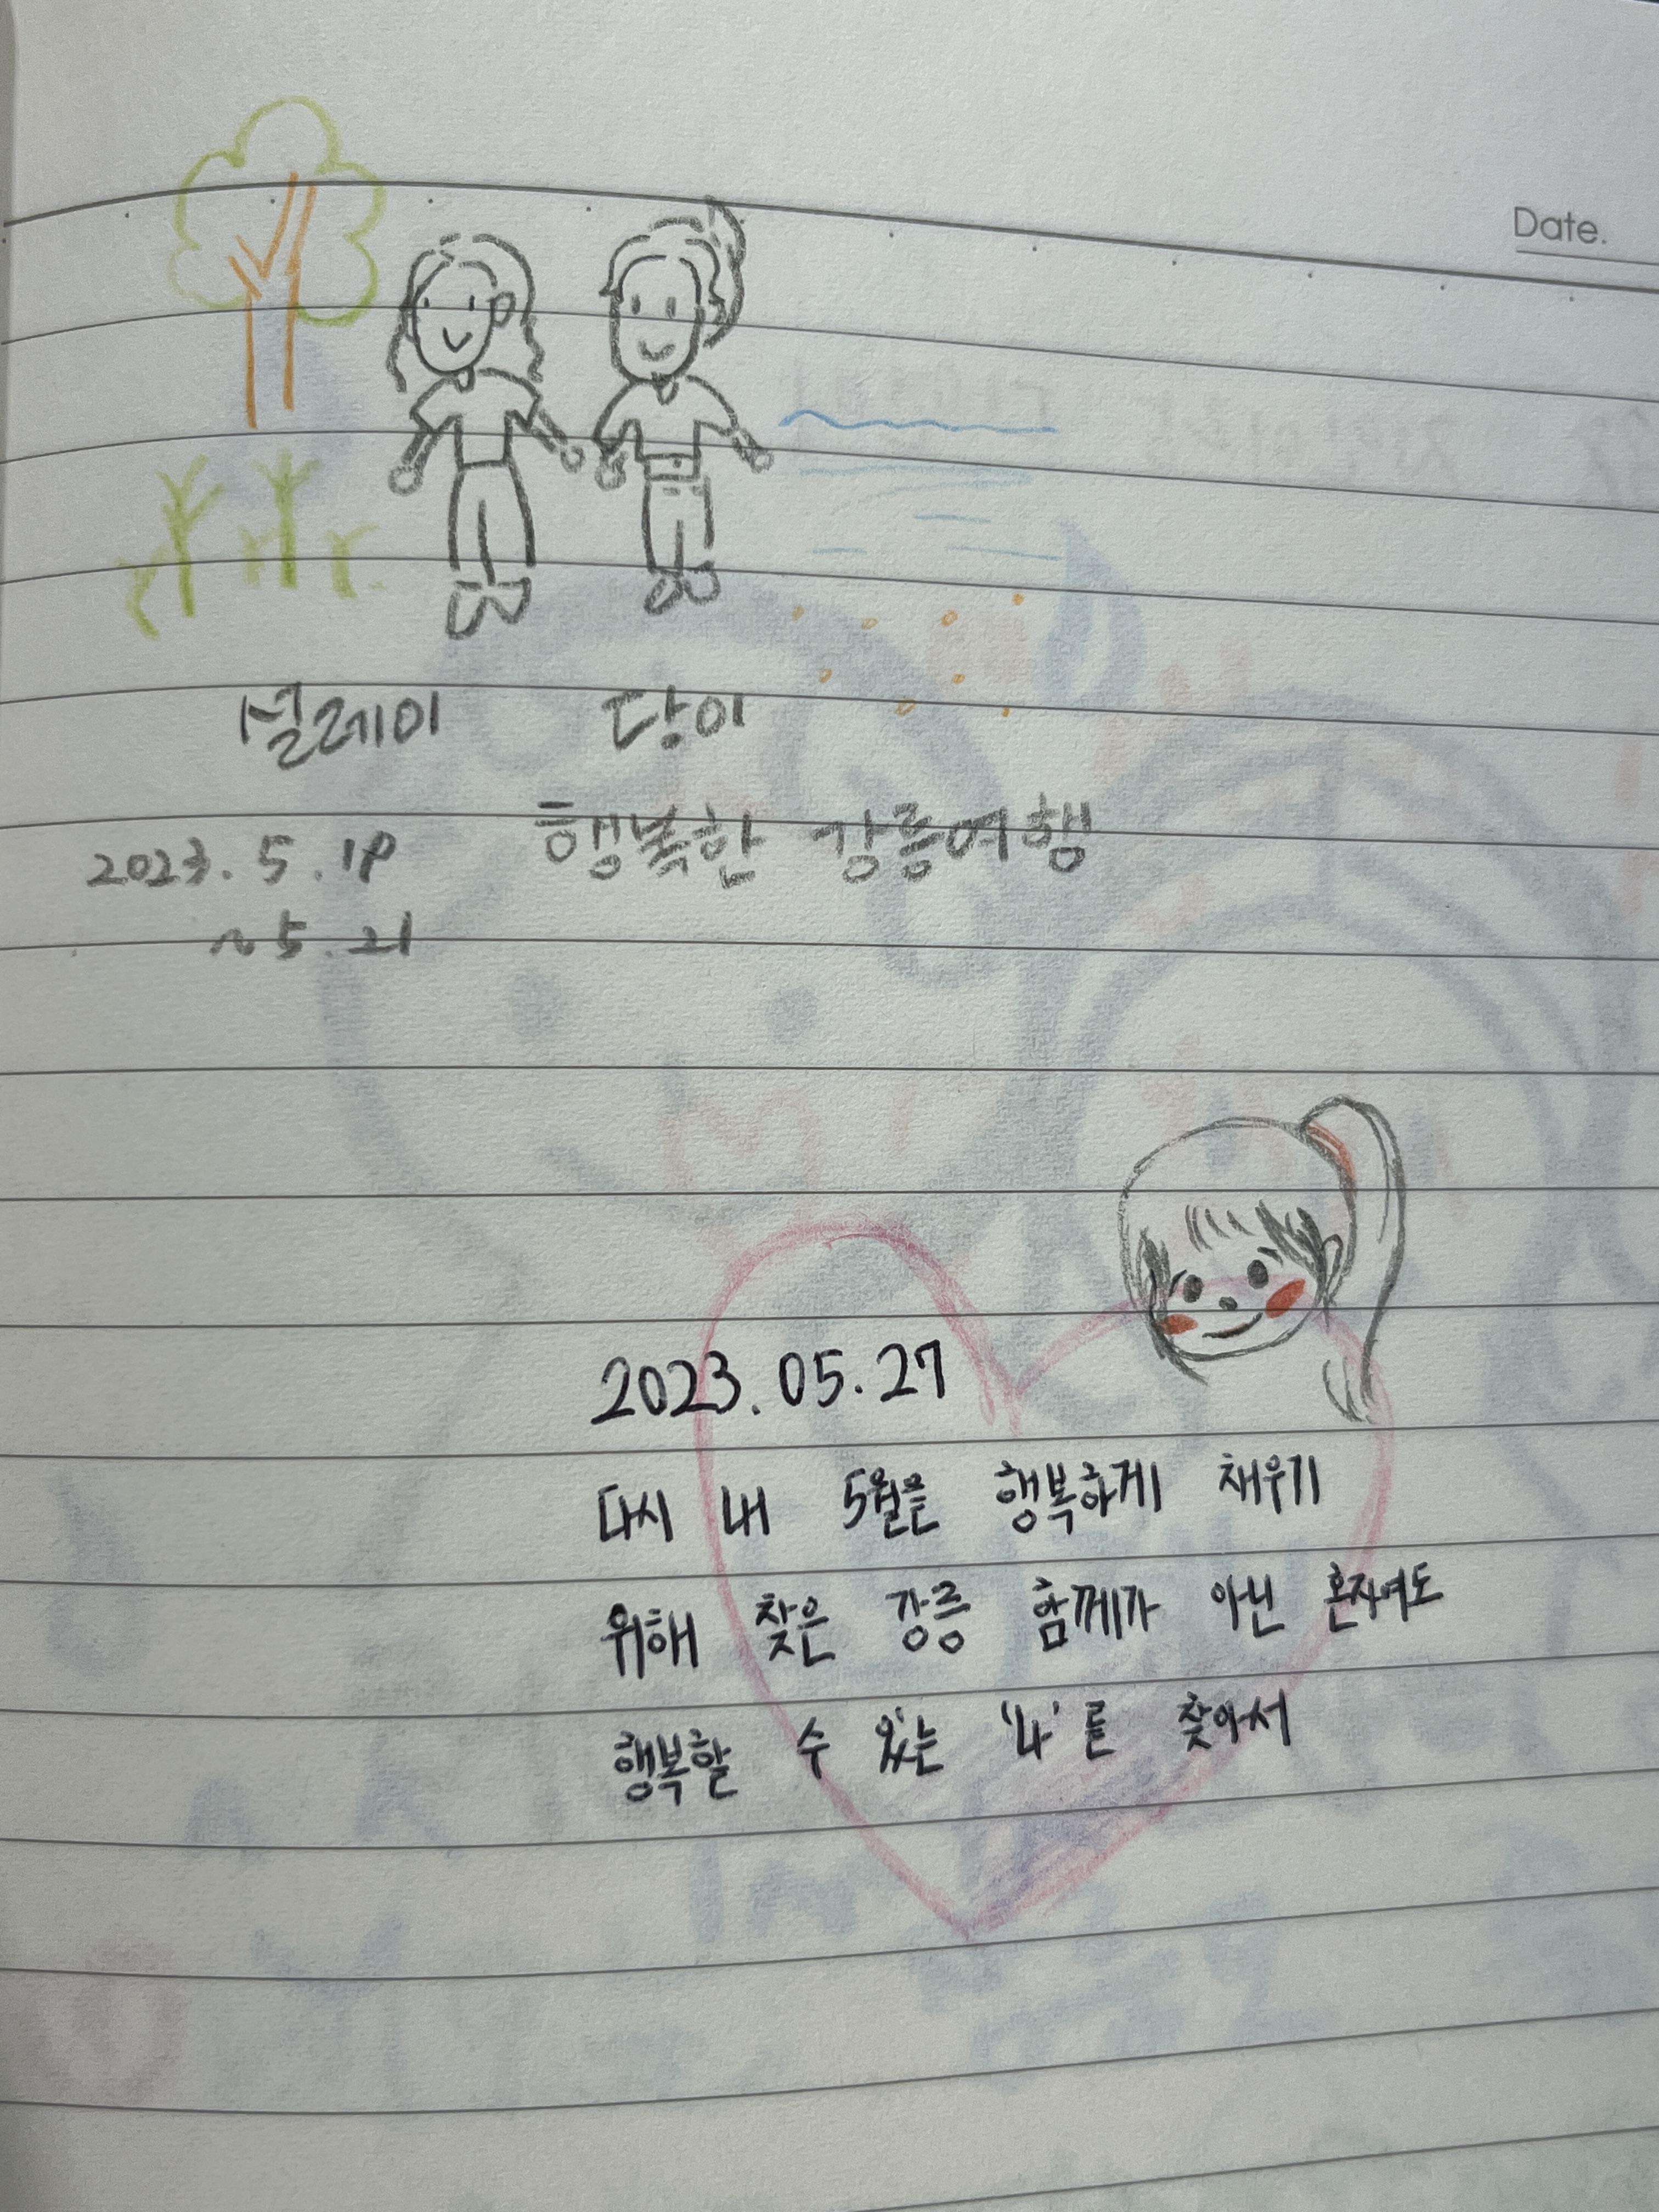 Date.
설레이 당이
2023. 5. 18 행복한 강릉여행
~5. 21
2023. 05. 27
다시 내 5월을 행복하게 채우기
위해 찾은 강릉 함께가 아닌 혼자여도
행복할 수 있는 '나'를 찾아서